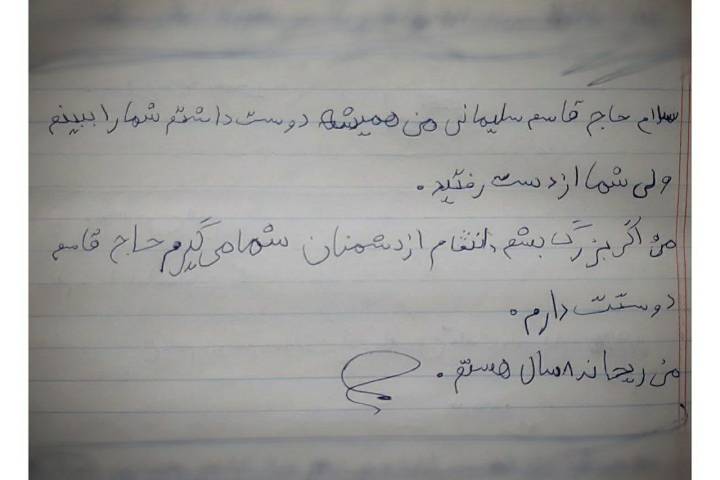 سلام حاج قاسم سلیمانی من همیشه دوست داشتم شما را ببینم
ولی شما از دست رفتید.
من اگر بزرگ بشم انتقام از دشمنان شما می گیرم حاج قاسم
دوستت دارم.
من ریحانه ۸ سال هستم.